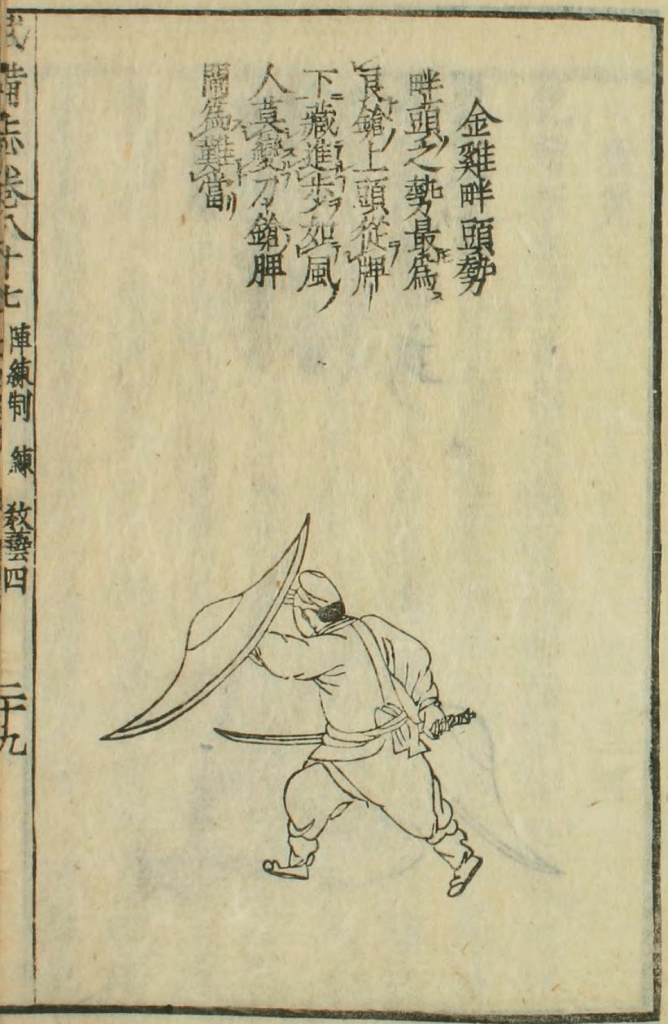 金雞畔頭勢
畔頭之勢最爲
良鎗上頭從牌
下藏進步如風
人莫變刀鎗脾
閙爲難當
武備志卷八十七 陣練制 練 教藝四 二十九